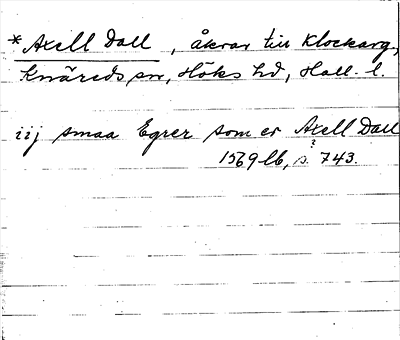 * Axell Dall, åkrar till Klockarg,
Knäreds sn, Höks hd, Hall. l.
iij smaa Egrer som er Axell Dall
1569 lb, s. 743.